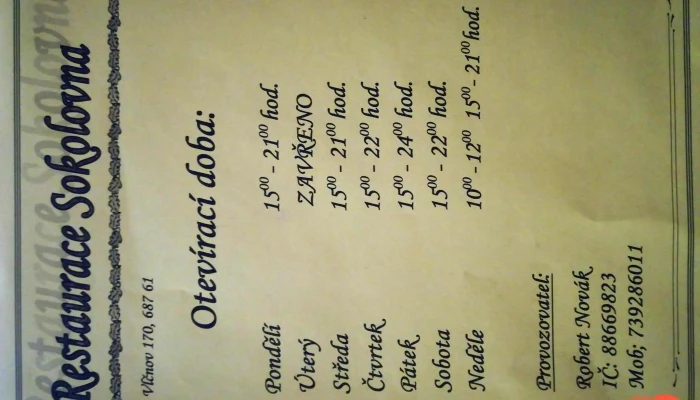 Restaurace Sokolovna
Restaurace Sokolovna
Vlčnov 170, 687 61
Otevírací doba:
Pondělí 15⁰⁰ - 21⁰⁰ hod.
Úterý ZAVŘENO
Středa 15⁰⁰ - 21⁰⁰ hod.
Čtvrtek 15⁰⁰ - 22⁰⁰ hod.
Pátek 15⁰⁰ - 24⁰⁰ hod.
Sobota 15⁰⁰ - 22⁰⁰ hod.
Neděle 10⁰⁰ - 12⁰⁰ 15⁰⁰ - 21⁰⁰ hod.
Provozovatel:
Robert Novák
IČ: 88669823
Mob; 739286011